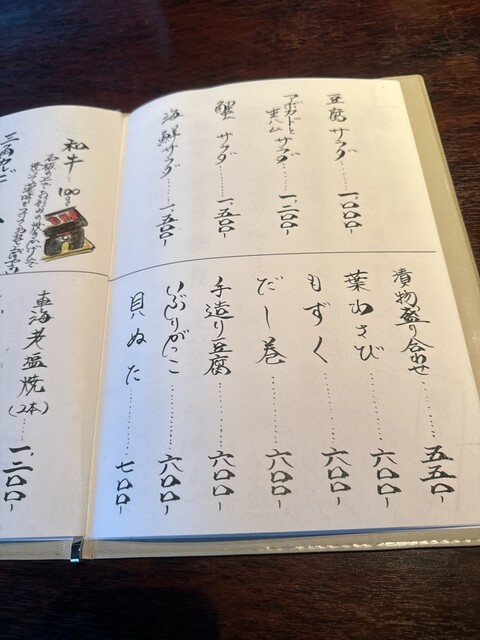 豆腐サラダ……一、〇〇〇-
アボガドと生ハムサラダ……一、二〇〇-
蟹サラダ……一、五〇〇-
海鮮サラダ……一、五〇〇-
漬物盛り合わせ……五五〇-
葉わさび……六〇〇-
もずく……六〇〇-
だし巻……六〇〇-
手造り豆腐……六〇〇-
いぶりがっこ……六〇〇-
貝ぬた……七〇〇-
和牛 100g
車海老塩焼(2本)……一、二〇〇-